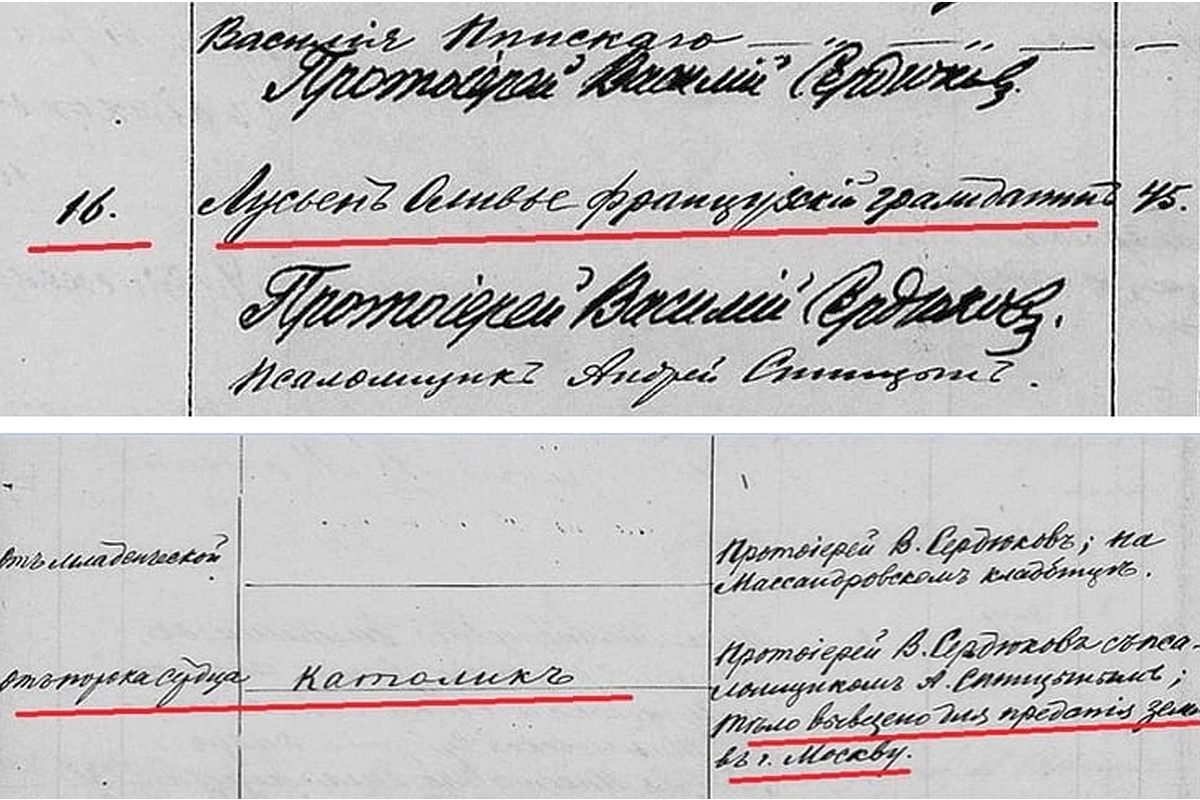 Василія Ялтскаго — „ — „ — —
Протоіерей Василій Сердюковъ.
16. Лусьенъ Оливье французскій гражданинъ 45.
Протоіерей Василій Сердюковъ.
Псаломщикъ Андрей Синицынъ.
отъ младенческой
Протоіерей В. Сердюковъ; на
Массандровскомъ кладбищѣ.
отъ порока сердца
Католикъ
Протоіерей В. Сердюковъ съ пса-
ломщикомъ А. Синицынымъ;
тѣло вывезено для преданія земл
въ г. Москву.